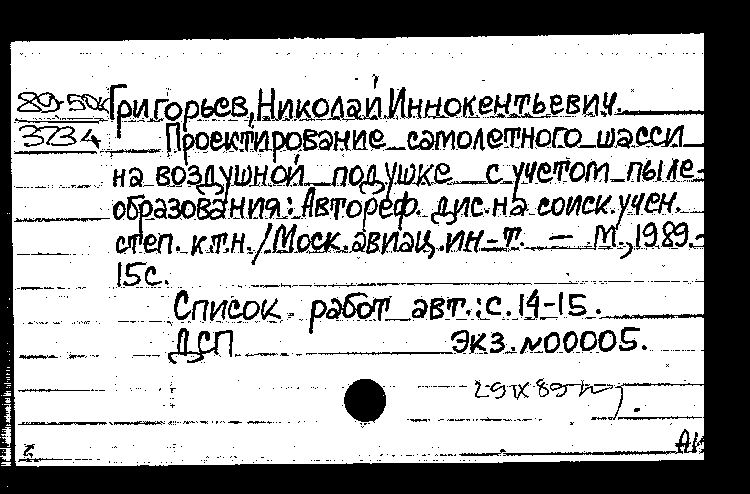 89-50к Григорьев, Николай Иннокентьевич.
3734 Проектирование самолетного шасси
на воздушной подушке с учетом пыле-
образования: Автореф. дис. на соиск. учен.
степ. к.т.н. / Моск. авиац. ин-т. — М., 1989.-
15с.
Список работ авт.: с. 14-15.
ДСП Экз. №00005.
29 IX 89